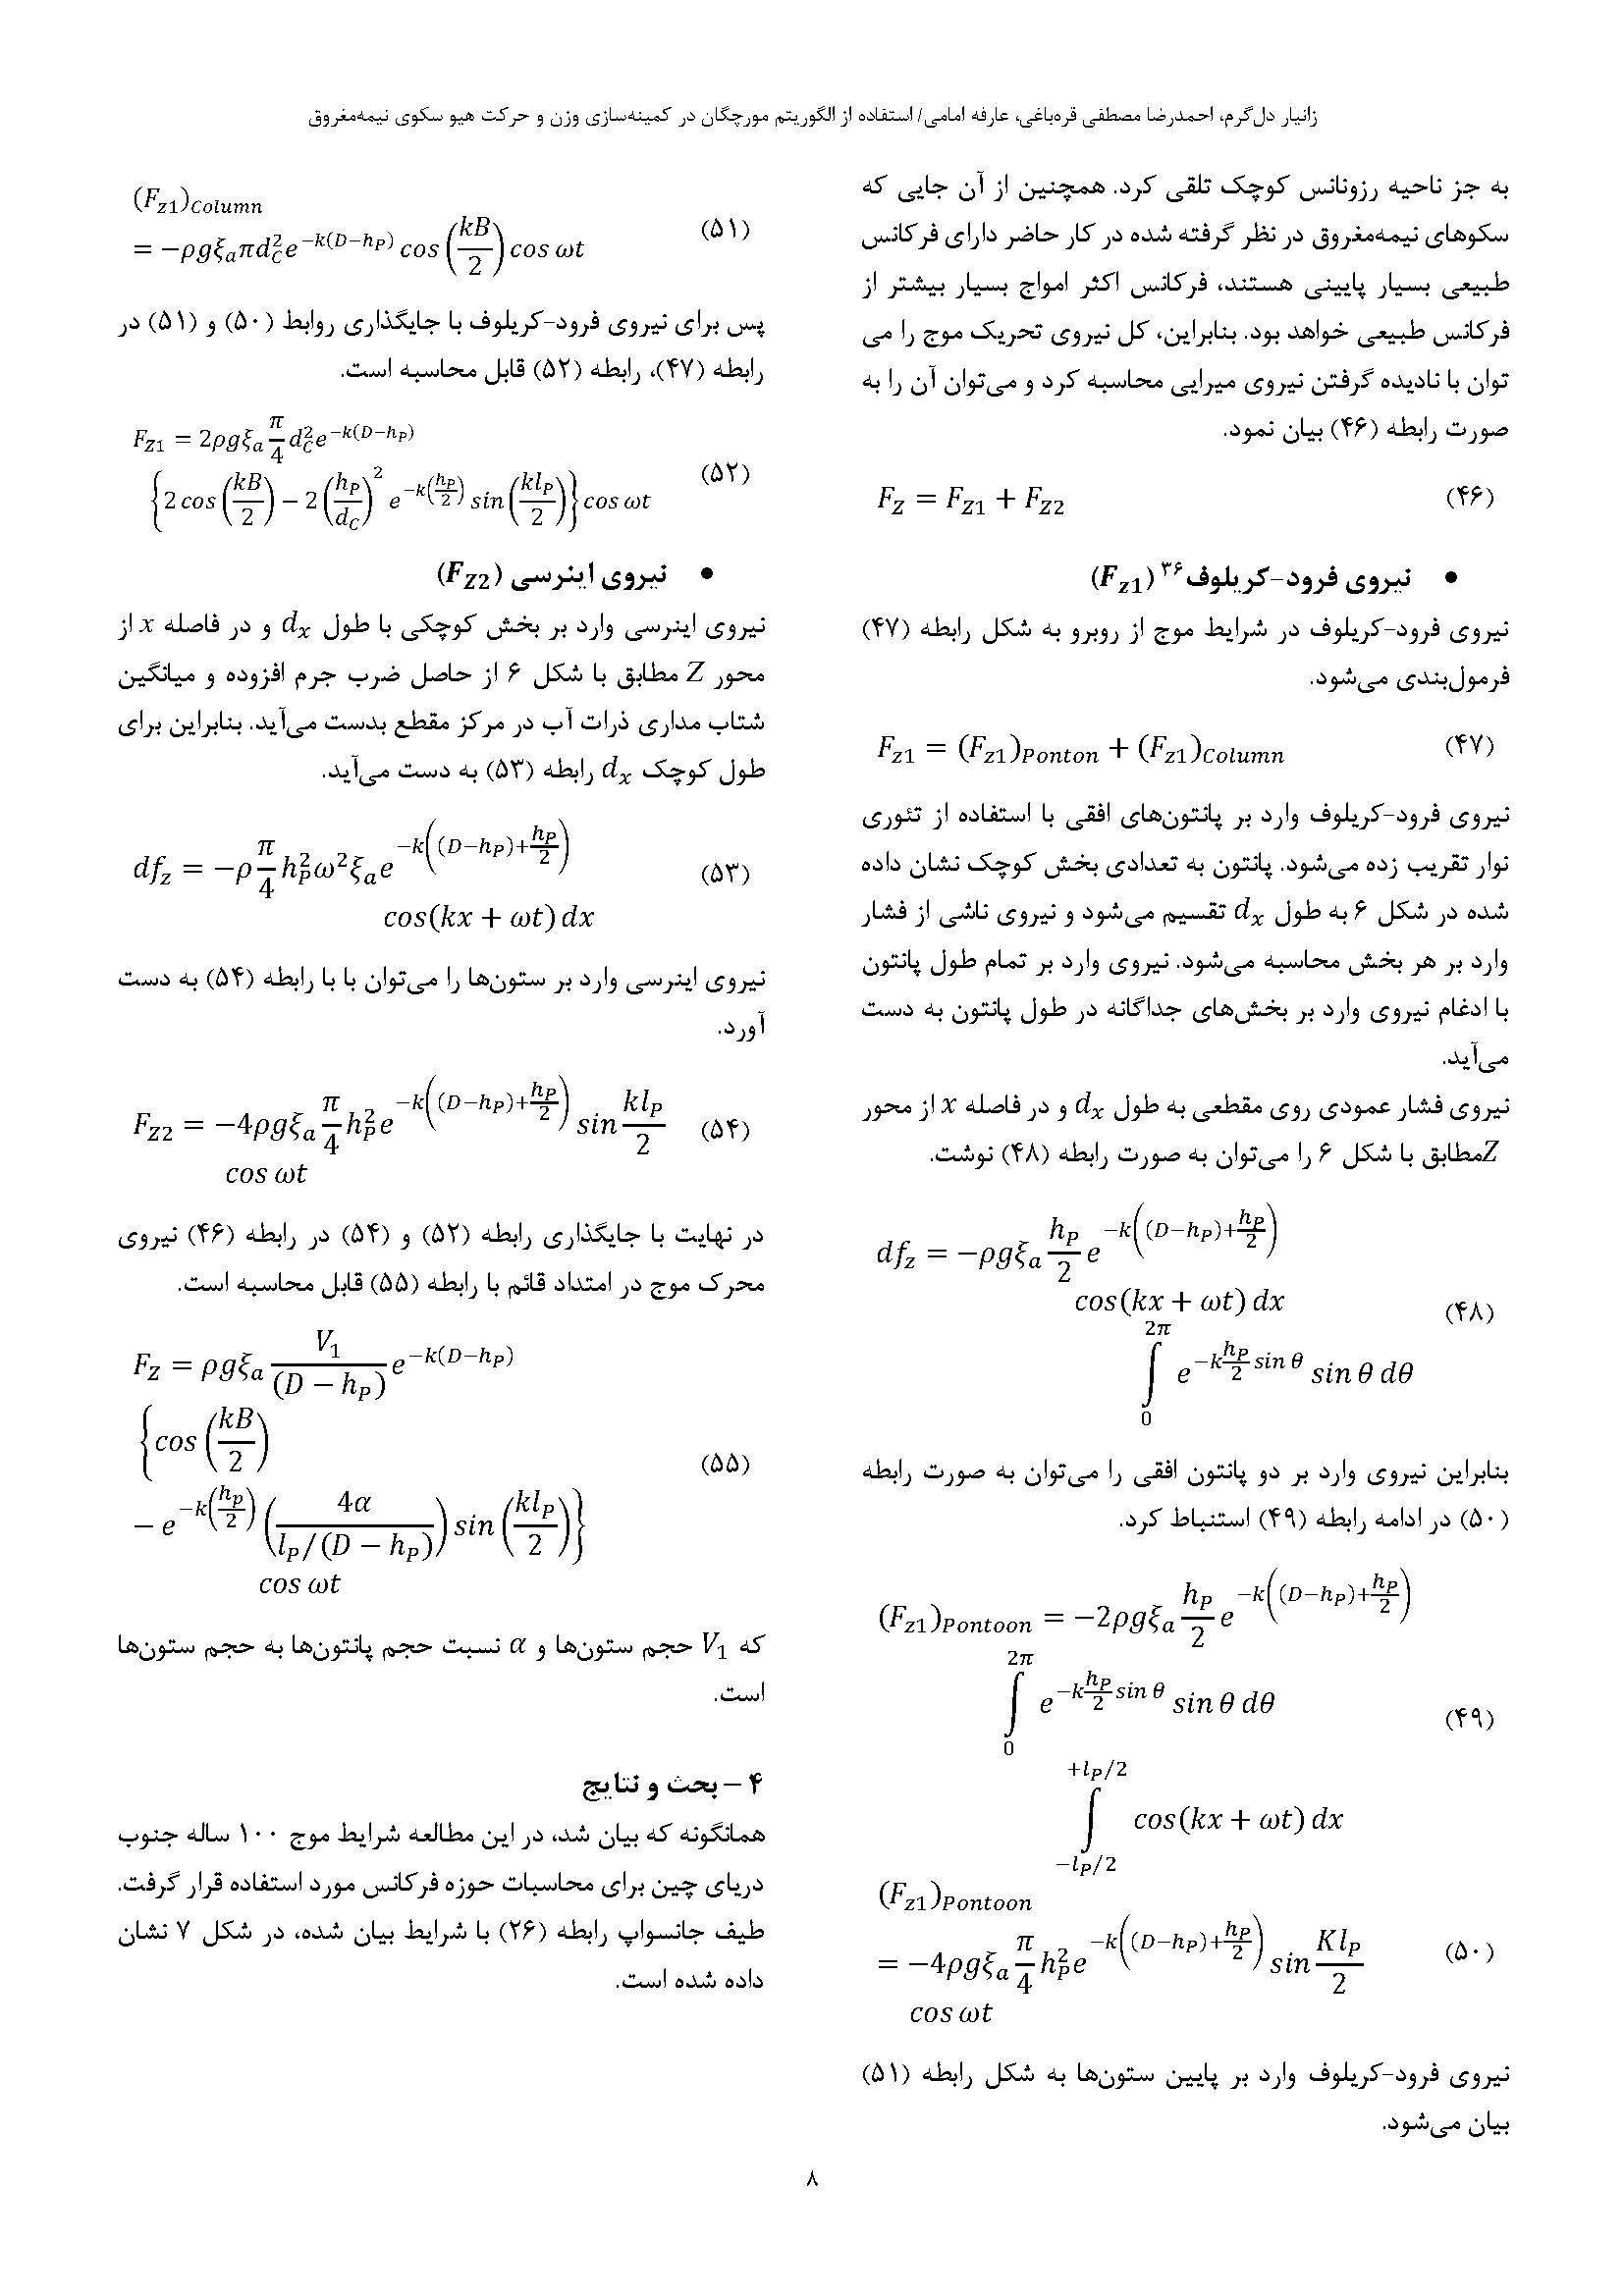 زانیار دل‌گرم، احمدرضا مصطفی قره‌باغی، عارفه امامی/ استفاده از الگوریتم مورچگان در کمینه‌سازی وزن و حرکت هیو سکوی نیمه‌مغروق
به جز ناحیه رزونانس کوچک تلقی کرد. همچنین از آن جایی که
سکوهای نیمه‌مغروق در نظر گرفته شده در کار حاضر دارای فرکانس
طبیعی بسیار پایینی هستند، فرکانس اکثر امواج بسیار بیشتر از
فرکانس طبیعی خواهد بود. بنابراین، کل نیروی تحریک موج را می
توان با نادیده گرفتن نیروی میرایی محاسبه کرد و می‌توان آن را به
صورت رابطه (۴۶) بیان نمود.
F_Z = F_{Z1} + F_{Z2} (۴۶)
• نیروی فرود-کریلوف۳۶ (F_{z1})
نیروی فرود-کریلوف در شرایط موج از روبرو به شکل رابطه (۴۷)
فرمول‌بندی می‌شود.
F_{z1} = (F_{z1})_{Ponton} + (F_{z1})_{Column} (۴۷)
نیروی فرود-کریلوف وارد بر پانتون‌های افقی با استفاده از تئوری
نوار تقریب زده می‌شود. پانتون به تعدادی بخش کوچک نشان داده
شده در شکل ۶ به طول d_x تقسیم می‌شود و نیروی ناشی از فشار
وارد بر هر بخش محاسبه می‌شود. نیروی وارد بر تمام طول پانتون
با ادغام نیروی وارد بر بخش‌های جداگانه در طول پانتون به دست
می‌آید.
نیروی فشار عمودی روی مقطعی به طول d_x و در فاصله x از محور
Zمطابق با شکل ۶ را می‌توان به صورت رابطه (۴۸) نوشت.
df_z = −ρgξ_a \frac{h_P}{2} e^{−k((D−h_P)+\frac{h_P}{2})}
cos(kx + ωt) dx
\int_0^{2π} e^{−k\frac{h_P}{2} sin θ} sin θ dθ (۴۸)
بنابراین نیروی وارد بر دو پانتون افقی را می‌توان به صورت رابطه
(۵۰) در ادامه رابطه (۴۹) استنباط کرد.
(F_{z1})_{Pontoon} = −2ρgξ_a \frac{h_P}{2} e^{−k((D−h_P)+\frac{h_P}{2})}
\int_0^{2π} e^{−k\frac{h_P}{2} sin θ} sin θ dθ (۴۹)
\int_{−l_P/2}^{+l_P/2} cos(kx + ωt) dx
(F_{z1})_{Pontoon}
= −4ρgξ_a \frac{π}{4} h_P^2 e^{−k((D−h_P)+\frac{h_P}{2})} sin \frac{Kl_P}{2} (۵۰)
cos ωt
نیروی فرود-کریلوف وارد بر پایین ستون‌ها به شکل رابطه (۵۱)
بیان می‌شود.
(F_{z1})_{Column}
= −ρgξ_aπd_C^2 e^{−k(D−h_P)} cos(\frac{kB}{2}) cos ωt (۵۱)
پس برای نیروی فرود-کریلوف با جایگذاری روابط (۵۰) و (۵۱) در
رابطه (۴۷)، رابطه (۵۲) قابل محاسبه است.
F_{Z1} = 2ρgξ_a \frac{π}{4} d_C^2 e^{−k(D−h_P)}
{2 cos(\frac{kB}{2}) − 2(\frac{h_P}{d_C})^2 e^{−k(\frac{h_P}{2})} sin(\frac{kl_P}{2})} cos ωt (۵۲)
• نیروی اینرسی (F_{Z2})
نیروی اینرسی وارد بر بخش کوچکی با طول d_x و در فاصله x از
محور Z مطابق با شکل ۶ از حاصل ضرب جرم افزوده و میانگین
شتاب مداری ذرات آب در مرکز مقطع بدست می‌آید. بنابراین برای
طول کوچک d_x رابطه (۵۳) به دست می‌آید.
df_z = −ρ \frac{π}{4} h_P^2 ω^2 ξ_a e^{−k((D−h_P)+\frac{h_P}{2})} (۵۳)
cos(kx + ωt) dx
نیروی اینرسی وارد بر ستون‌ها را می‌توان با با رابطه (۵۴) به دست
آورد.
F_{Z2} = −4ρgξ_a \frac{π}{4} h_P^2 e^{−k((D−h_P)+\frac{h_P}{2})} sin \frac{kl_P}{2} (۵۴)
cos ωt
در نهایت با جایگذاری رابطه (۵۲) و (۵۴) در رابطه (۴۶) نیروی
محرک موج در امتداد قائم با رابطه (۵۵) قابل محاسبه است.
F_Z = ρgξ_a \frac{V_1}{(D − h_P)} e^{−k(D−h_P)}
{cos(\frac{kB}{2}) (۵۵)
− e^{−k(\frac{h_p}{2})} (\frac{4α}{l_P/(D − h_P)}) sin(\frac{kl_P}{2})}
cos ωt
که V_1 حجم ستون‌ها و α نسبت حجم پانتون‌ها به حجم ستون‌ها
است.
۴ – بحث و نتایج
همانگونه که بیان شد، در این مطالعه شرایط موج ۱۰۰ ساله جنوب
دریای چین برای محاسبات حوزه فرکانس مورد استفاده قرار گرفت.
طیف جانسواپ رابطه (۲۶) با شرایط بیان شده، در شکل ۷ نشان
داده شده است.
۸